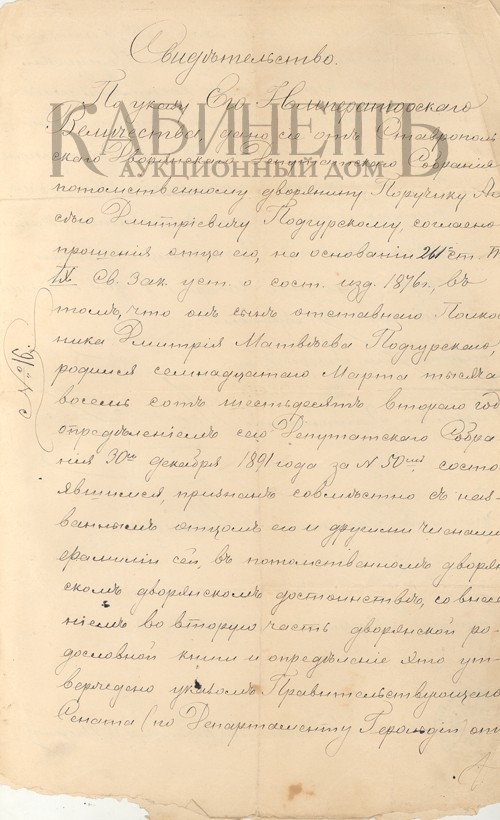 Свидѣтельство.
По указу Его Императорскаго
КАБИНЕТЪ
Величества, дано сіе отъ Ставрополь
скаго Дворянскаго Депутатскаго Собранія
АУКЦИОННЫЙ ДОМ
потомственному дворянину Поручику
Дмитріевичу Подгурскому, согласно
прошенія отца его, на основаніи 261 ст. Т.
IX Св. Зак. уст. о сост. изд. 1876 г., въ
томъ, что онъ сынъ отставнаго Полко
вника Дмитрія Матвѣева Подгурскаго,
родился семнадцатаго Марта тысяча
восемь сотъ шестьдесятъ втораго год
опредѣленіемъ сего Депутатскаго Собра
нія 30го декабря 1891 года за № 50ымъ состо
явшимся, признанъ совмѣстно съ наз
ваннымъ отцомъ его и другими членами
фамиліи сей, въ потомственномъ дворян
скомъ дворянскомъ достоинствѣ, со внесе
ніемъ во вторую часть дворянской ро
дословной книги и опредѣленіе это ут
верждено указомъ Правительствующаго
Сената (по Департаменту Герольдіи) отъ
№ 19.